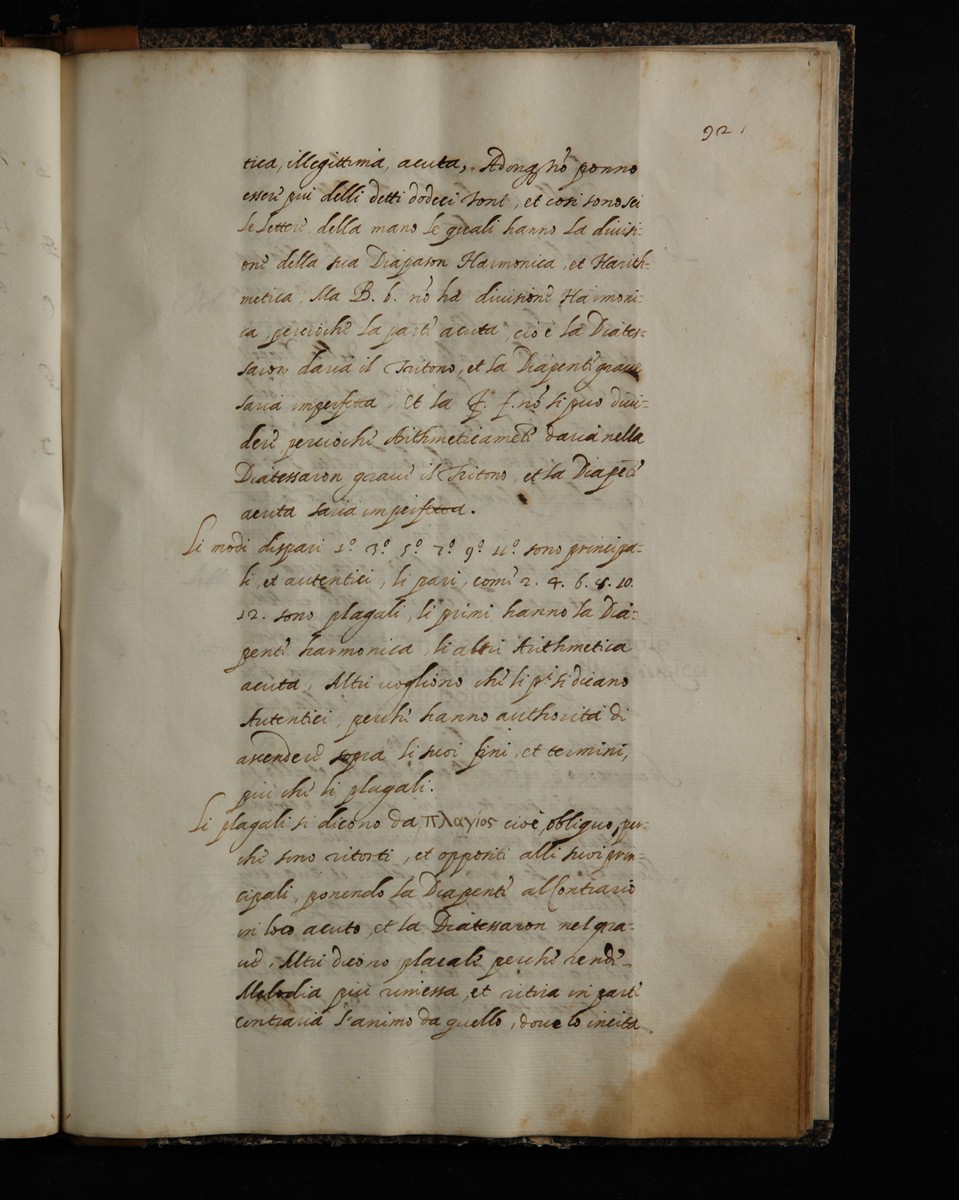 92
tica, illegittima, acuta, Adonq̃ nõ ponno
esser piu delli detti dodeci soni, et cosi sono sei
le lettere della mano le quali hanno la divisi-
one della sua Diapason Harmonica, et Harith-
metica, Ma B. b. nõ ha divisione Harmoni-
ca, perciochè la parte acuta, cioè la Diates-
saron daria il Tritono, et la Diapente grave
saria imperfetta, et la F. f. nõ si puo divi-
dere perciochè Arithmeticamẽte daria nella
Diatessaron grave il Tritono, et la Diapẽte
acuta saria imperfetta.
Li modi dispari 1º 3º 5º 7º 9º 11º sono principa-
li et autentici, li pari, come 2. 4. 6. 8. 10.
12. sono plagali, li primi hanno la Dia-
pente harmonica, li altri Arithmetica
acuta, Altri vogliono che li pⁱ si dicano
Autentici, perche hanno authorità di
ascendere sopra li suoi fini, et termini,
piu che li plagali.
Li plagali si dicono da πλαγιος cioè, obliquo, per-
che sono ritorti, et oppositi alli suoi prin-
cipali, ponendo la Diapente al Contrario
in loco acuto, et la Diatessaron nel gra-
ve, Altri dicono placali perche rende
Melodia piu rimessa, et ritira in parte
contraria l'animo da quello, dove lo incita